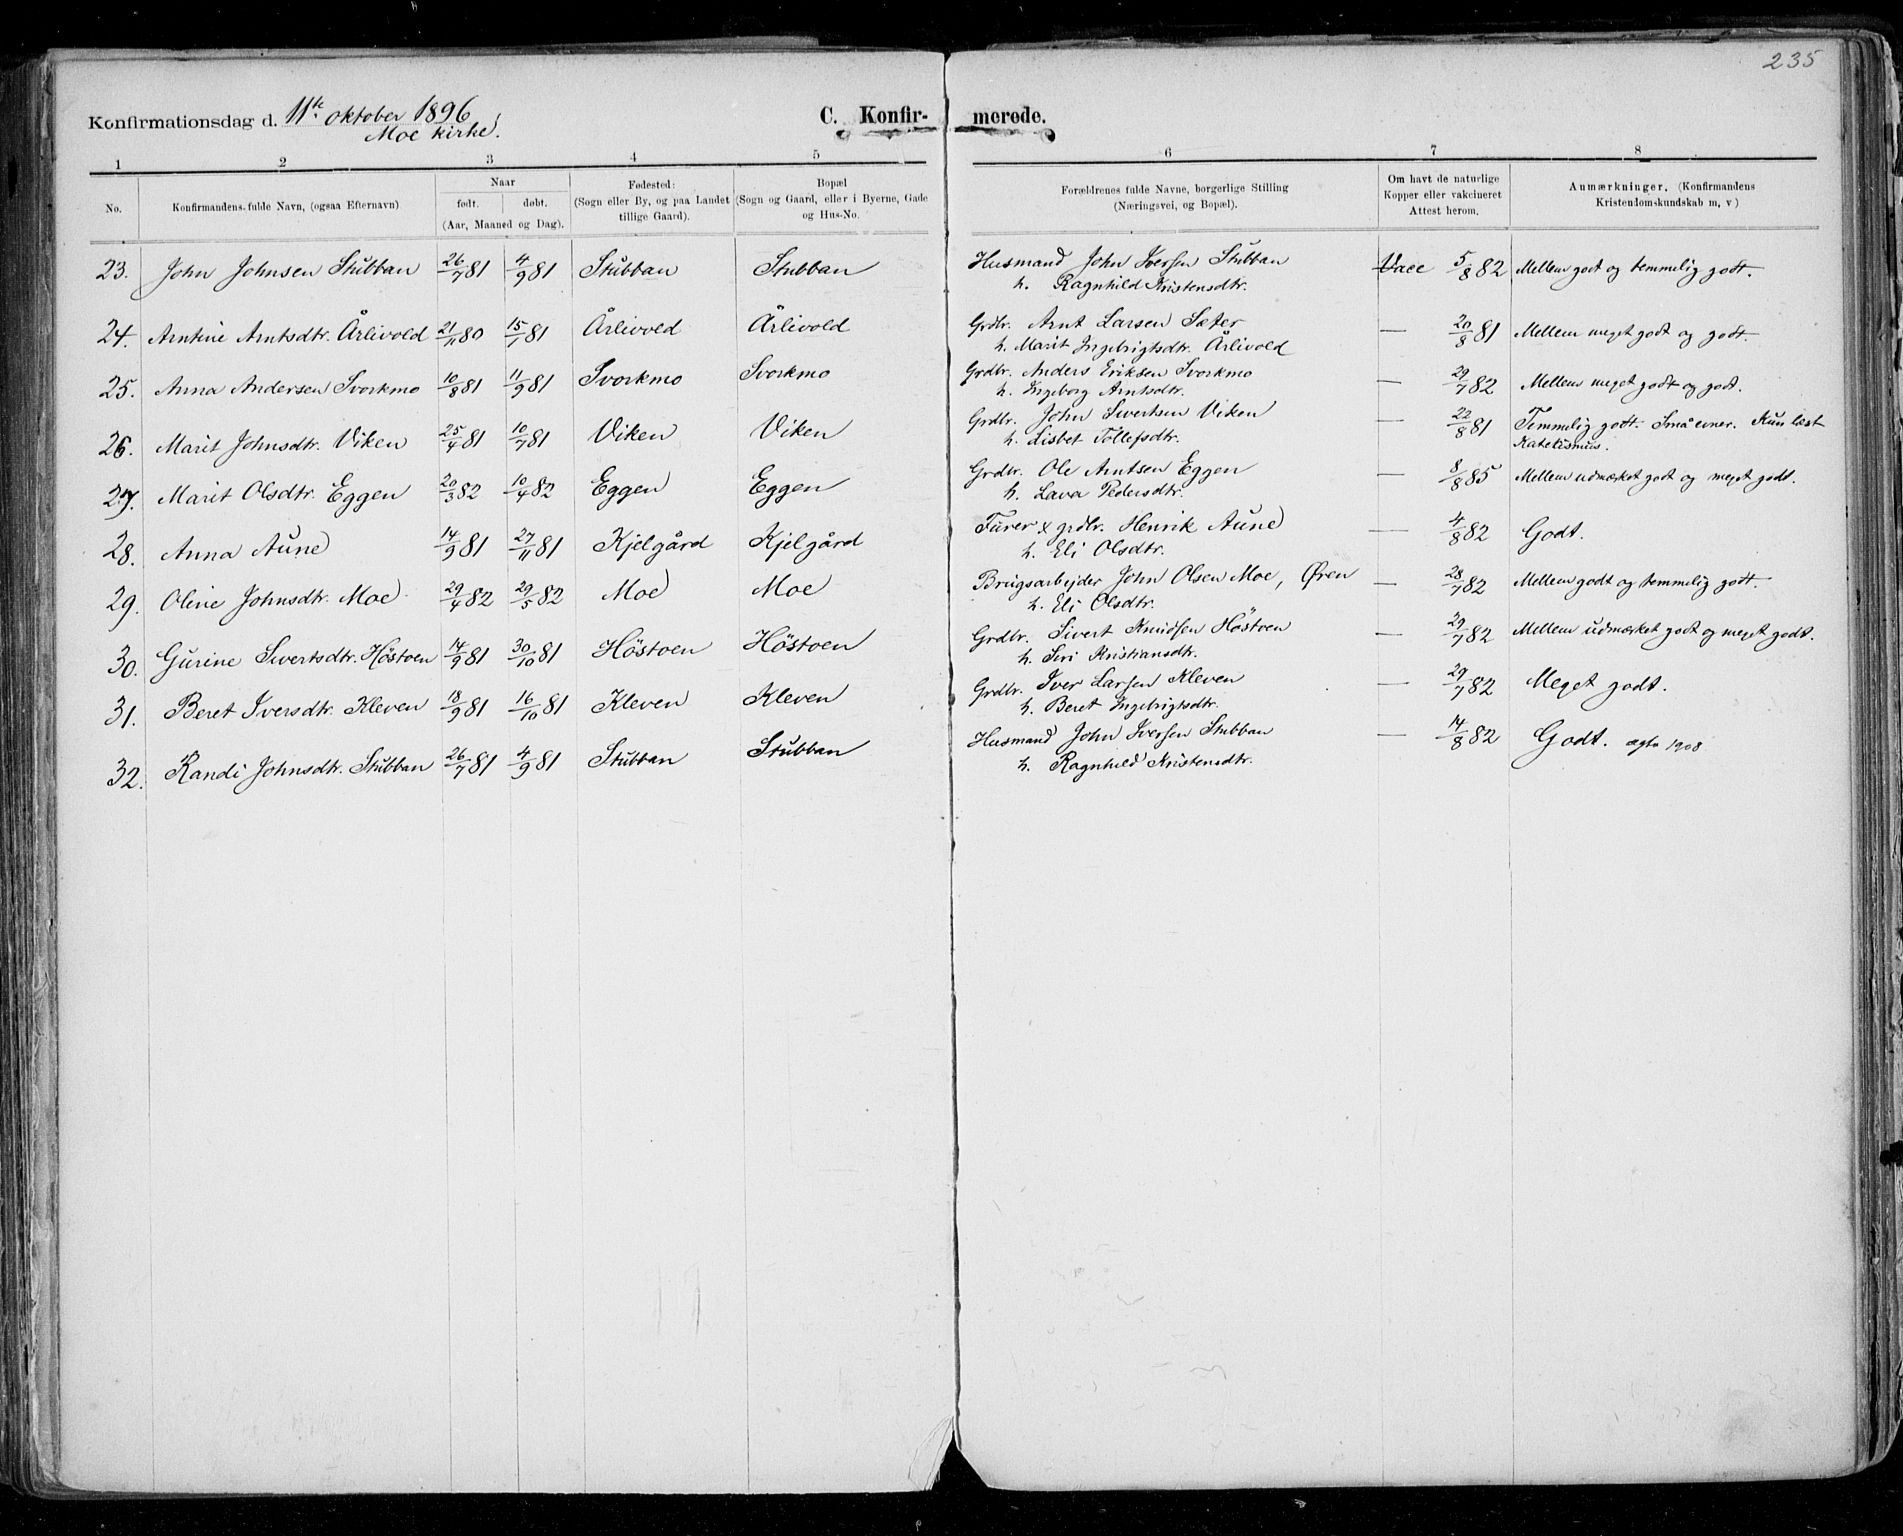 235
Konfirmationsdag d. 11te oktober 1896
Moe kirke.
C. Konfir- merede.
1 2 3 4 5 6 7 8
No. Konfirmandens fulde Navn, (ogsaa Efternavn) Naar født. døbt. (Aar, Maaned og Dag). Fødested: (Sogn eller By, og paa Landet tillige Gaard). Bopæl (Sogn og Gaard, eller i Byerne, Gade og Hus-No. Forældrenes fulde Navne, borgerlige Stilling (Næringsvei, og Bopæl). Om havt de naturlige Kopper eller vakcineret Attest herom. Anmærkninger. (Konfirmandens Kristendomskundskab m, v)
23. John Johnsen Stubban 26/7 81 4/9 81 Stubban Stubban Husmand John Iversen Stubban Vacc 5/8 82 Mellem godt og temmelig godt.
h. Ragnhild Kristensdtr.
24. Arntine Arntsdtr. Årlivold 21/11 80 15/1 81 Årlivold Årlivold Grdbr. Arnt Larsen Sæter — 20/8 81 Mellem meget godt og godt.
h. Marit Ingebrigtsdtr. Årlivold
25. Anna Andersen Svorkmo 10/8 81 11/9 81 Svorkmo Svorkmo Grdbr. Anders Eriksen Svorkmo — 29/7 82 Mellem meget godt og godt.
h. Ingeborg Arntsdtr.
26. Marit Johnsdtr. Viken 25/4 81 10/7 81 Viken Viken Grdbr. John Sivertsen Viken — 22/8 81 Temmelig godt. Små evner. Kun læst
h. Lisbet Tollefsdtr. Katekismus.
27. Marit Olsdtr. Eggen 20/3 82 10/4 82 Eggen Eggen Grdbr. Ole Arntsen Eggen — 8/8 85 Mellem udmærket godt og meget godt.
h. Lava Pedersdtr.
28. Anna Aune 14/9 81 27/11 81 Kjelgård Kjelgård Furer & grdbr. Henrik Aune — 4/8 82 Godt.
h. Eli Olsdtr.
29. Oline Johnsdtr. Moe 29/4 82 29/5 82 Moe Moe Brugsarbejder John Olsen Moe, Øren — 28/7 82 Mellem godt og temmelig godt.
h. Eli Olsdtr.
30. Gurine Sivertsdtr. Höstoen 14/9 81 30/10 81 Höstoen Höstoen Grdbr. Sivert Knudsen Höstoen — 29/7 82 Mellem udmærket godt og meget godt.
h. Siri Kristiansdtr.
31. Beret Iversdtr. Kleven 18/9 81 16/10 81 Kleven Kleven Grdbr. Iver Larsen Kleven — 29/7 82 Meget godt.
h. Beret Ingebrigtsdtr.
32. Randi Johnsdtr. Stubban 26/7 81 4/9 81 Stubban Stubban Husmand John Iversen Stubban — 14/8 82 Godt. 1908
h. Ragnhild Kristensdtr.